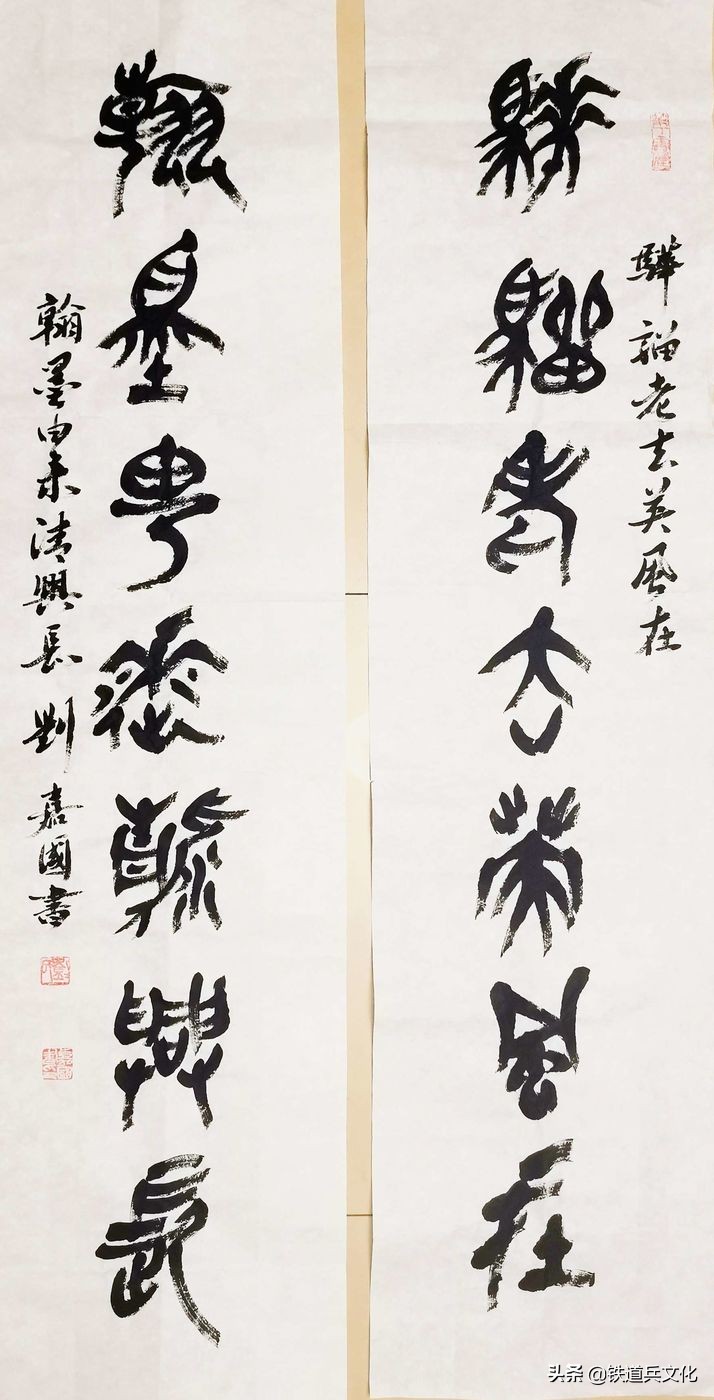 驊騮老去英風在
驊騮老去英風在
翰墨由來清興長
翰墨由來清興長 劉嘉國書
头条 @铁道兵文化